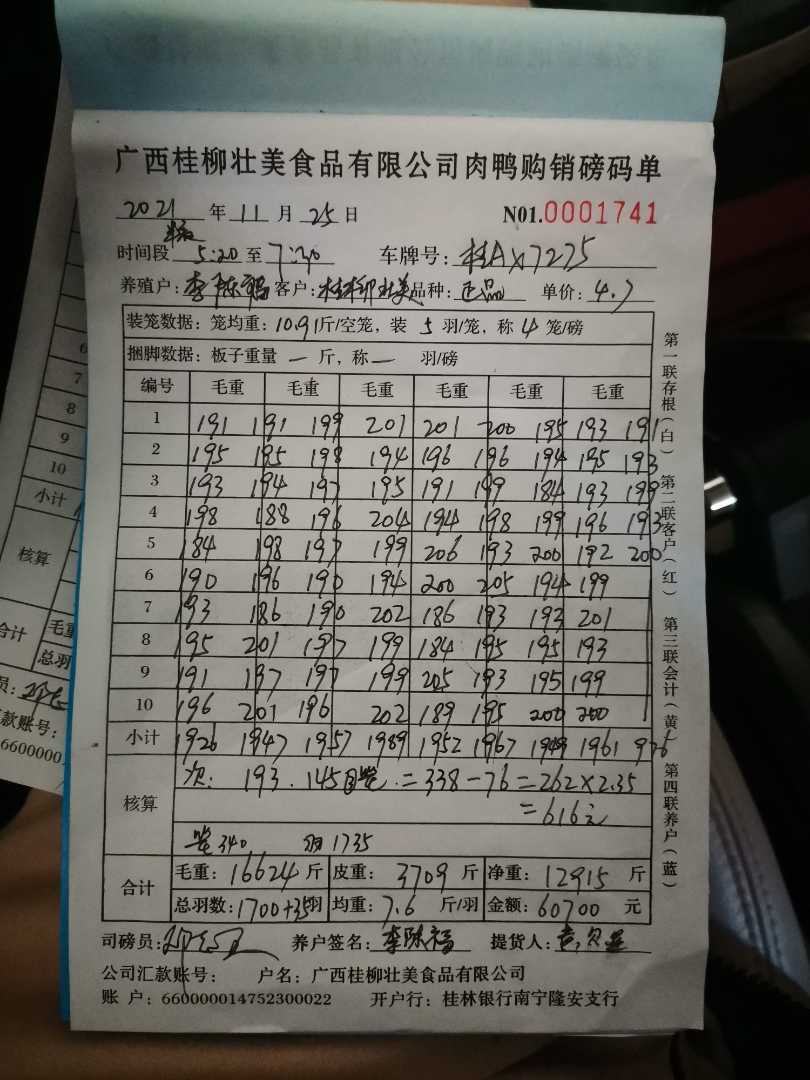 广西桂柳壮美食品有限公司肉鸭购销磅码单
2021 年 11 月 25 日 N01.0001741
时间段 5:20 至 7:30 车牌号: 桂AX7275
养殖户: 李陈福 客户: 桂柳壮美 品种: 正品 单价: 4.7
装笼数据: 笼均重: 10.91斤/空笼, 装 5 羽/笼, 称 4 笼/磅
捆脚数据: 板子重量 — 斤, 称 — 羽/磅
编号 毛重 毛重 毛重 毛重 毛重 毛重
1 191 191 199 201 201 200 195 193 191
2 195 195 198 194 196 196 194 195 193
3 193 194 197 195 191 199 184 193 199
4 198 188 196 204 194 198 199 196 193
5 184 198 197 199 206 193 200 192 200
6 190 196 190 194 200 205 194 199
7 193 186 190 202 186 193 193 201
8 195 201 197 199 184 195 195 193
9 191 197 197 199 205 193 195 199
10 196 201 196 202 189 195 200 200
小计 1926 1947 1957 1989 1952 1967 1949 1961 976
核算 次: 193. 145 =338-76=262×2.35
=616元
笼340 羽1735
合计 毛重: 16624 斤 皮重: 3709 斤 净重: 12915 斤
总羽数: 1700+35羽 均重: 7.6 斤/羽 金额: 60700 元
司磅员: 养户签名: 李陈福 提货人:
公司汇款账号: 户名: 广西桂柳壮美食品有限公司
账 户: 660000014752300022 开户行: 桂林银行南宁隆安支行
第一联存根(白) 第二联客户(红) 第三联会计(黄) 第四联养户(蓝)
6
7
8
9
10
小计
核算
合计 毛重
总羽
员:
款账号:
6600000